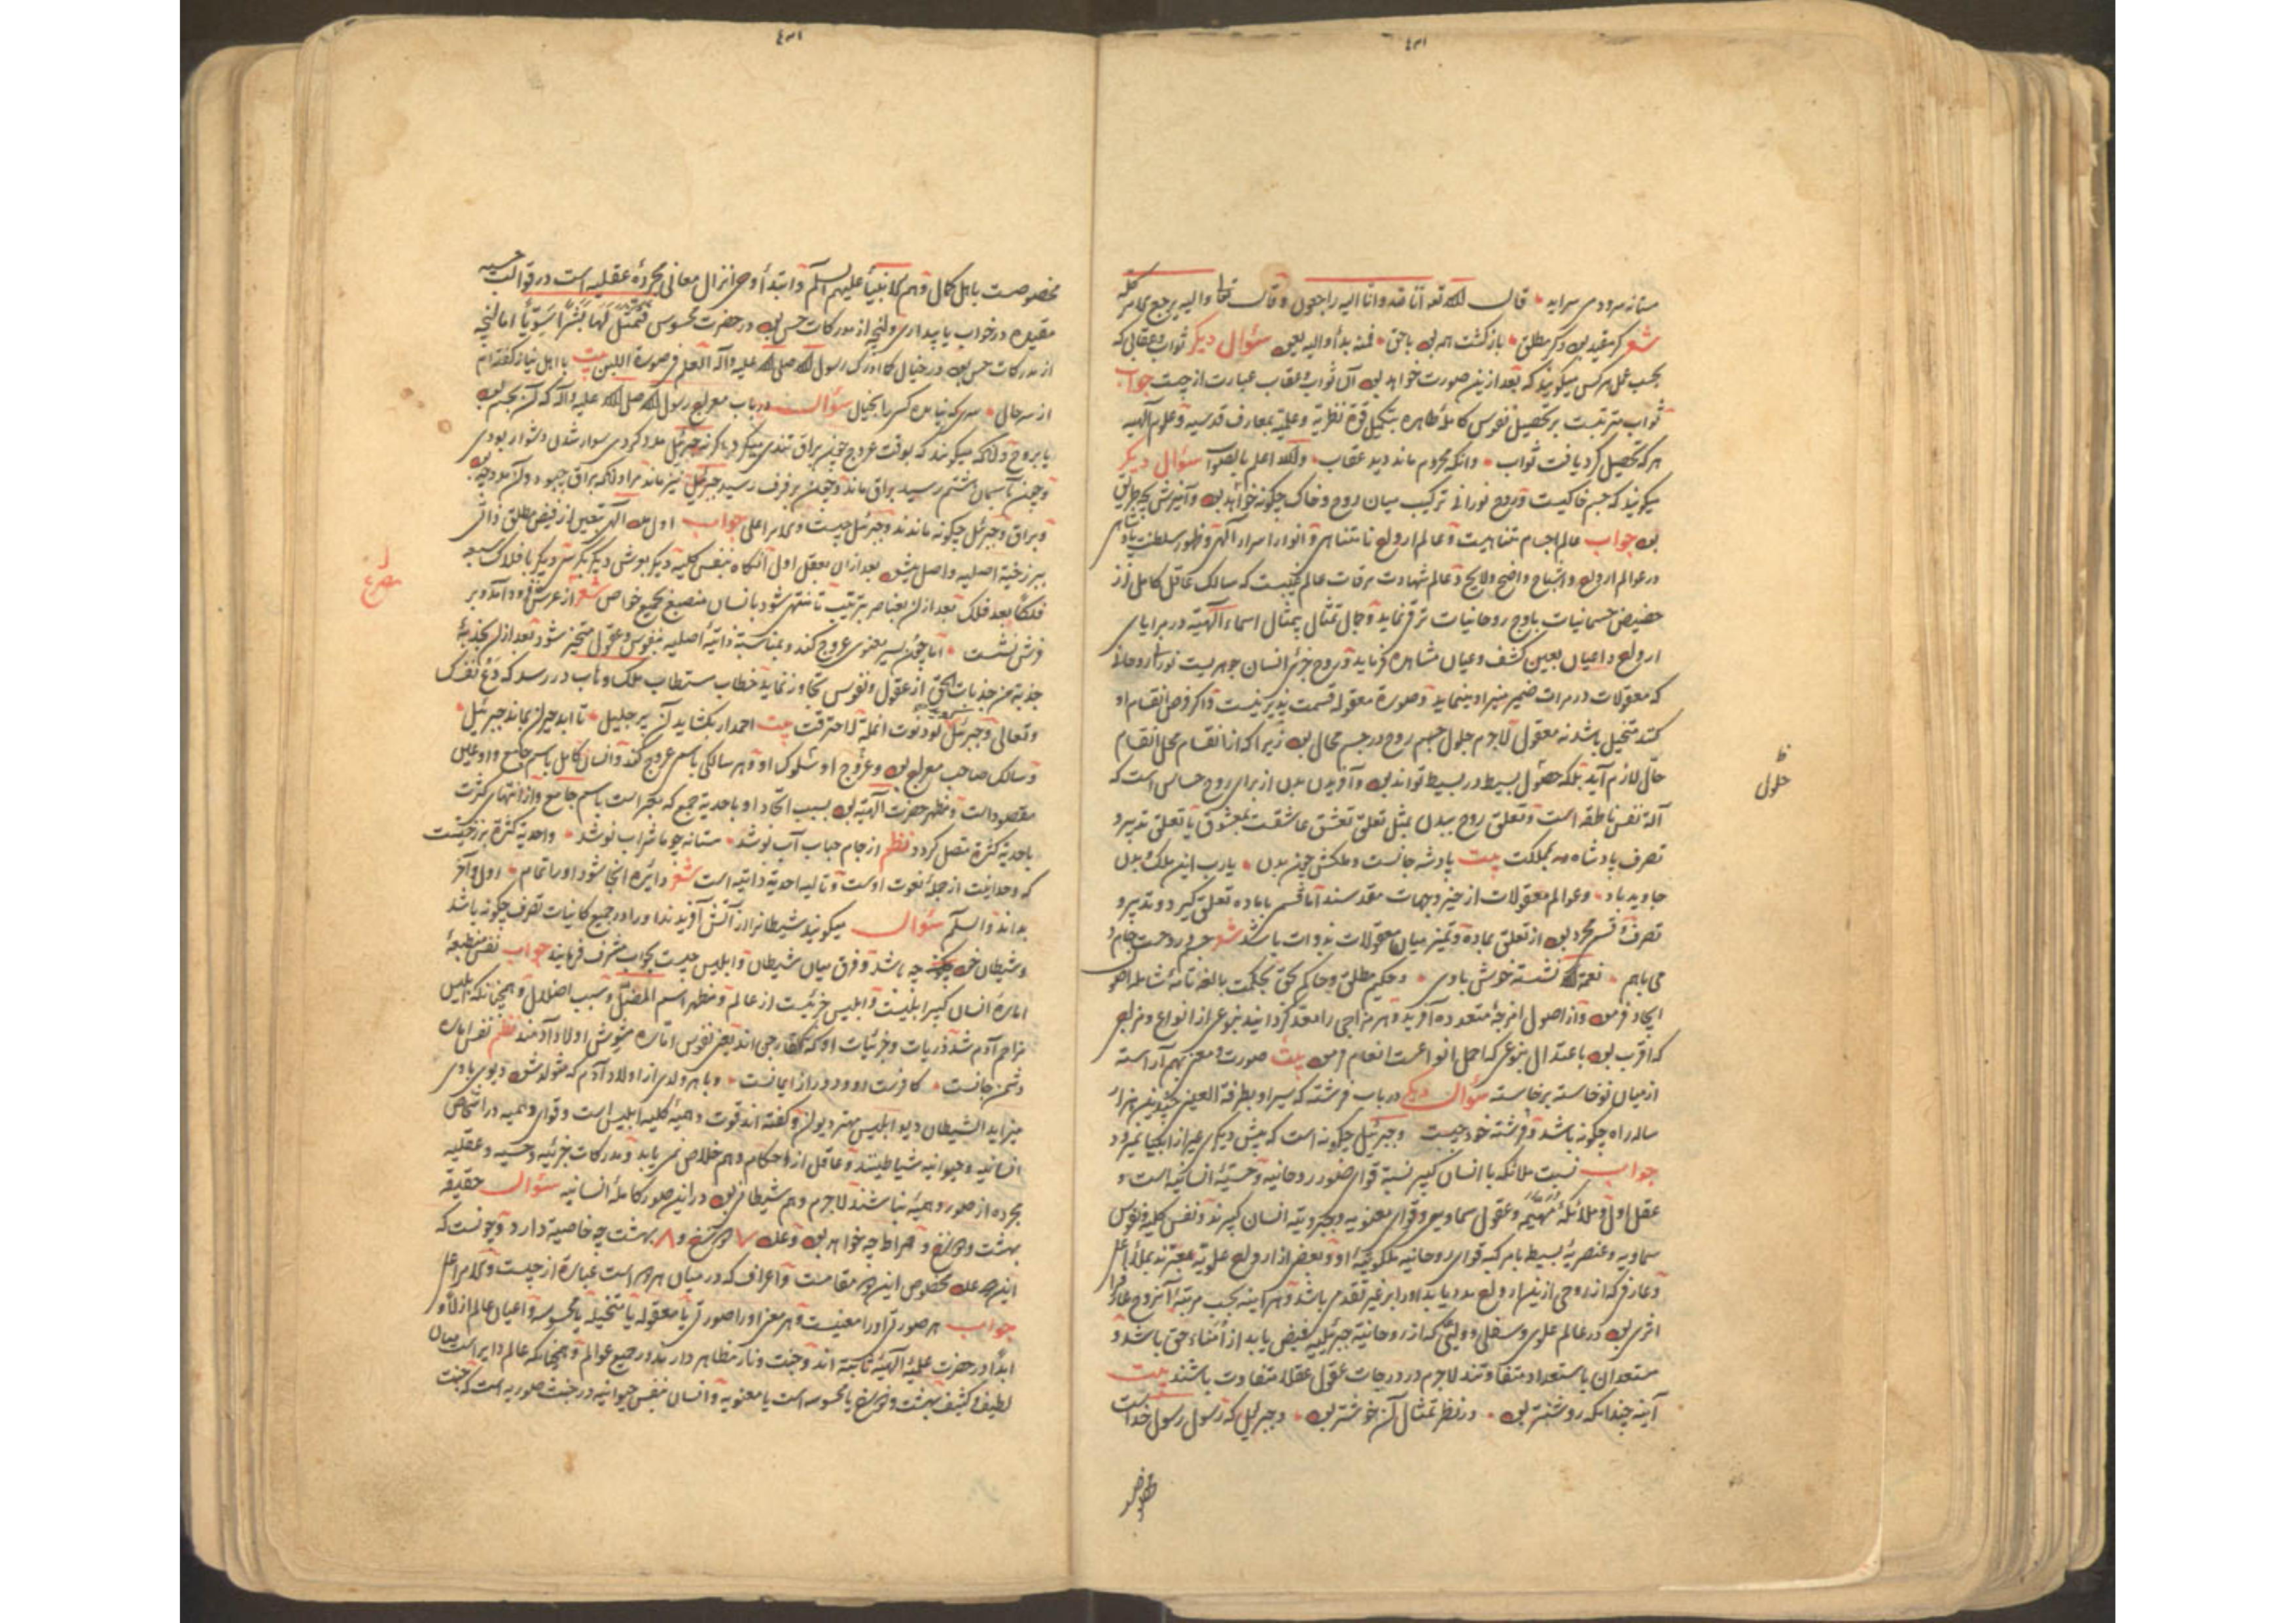 مستانه سرودی سراید قال الله تعالی انا لله وانا الیه راجعون وقال تعالی والیه یرجع الامر کله
شعر کر مقید بود وکر مطلق بازکشت همه بود باحق فمنه بدأ والیه یعود سؤال دیکر ثواب وعقابی که
بحسب عمل هرکس میکویند که بعد ازین صورت خواهد بود آن ثواب وعقاب عبارت از چیست جواب
ثواب مترتبست بر تحصیل نفوس کامله طاهره بتکمیل قوة نظریه وعملیه بمعارف قدسیه وعلوم الهیه
هرکه تحصیل کرد یافت ثواب وانکه محروم ماند دید عقاب والله اعلم بالصواب سؤال دیکر
میکویند که جسم خاکیست وروح نورانی ترکیب میان روح وخاک چکونه خواهد بود وآمیزش بچه طریق
بود جواب عالم اجسام متناهیست وعالم ارواح نامتناهی وانوار اسرار الهی وظهور سلطنت پادشاهی
در عوالم ارواح واشباح واضح ولایح وعالم شهادت مرقات عالم غیبست که سالک عاقل کامل از
حضیض جسمانیات باوج روحانیات ترقی نماید وجمال تمثال بیمثال اسماء الهیه در مرایای
ارواح واعیان بعین کشف وعیان مشاهده فرماید وروح جزئی انسان جوهریست نورانی روحانی
که معقولات در مرات ضمیر منیر او مینماید وصورة معقوله قسمت پذیر نیست واکر فرض انقسام او
کنند متخیل باشد نه معقول لاجرم حلول جسم روح در جسم محال بود زیرا که از انقسام محل انقسام
حال لازم آید بلکه حصول بسیط در بسیط تواند بود وآفریدن بدن از برای روح حساس است که
آلة نفس ناطقه است وتعلق روح ببدن بمثل تعلق تعشق عاشقست بمعشوق یا تعلق تدبیر و
تصرف پادشاه بمملکت بیت پادشه جانست وملکش چون بدن یارب این ملک بدن
جاوید باد وعوالم معقولات از حیز وجهات مقدسند اما قسمی باماده تعلق کیرد وتدبیر و
تصرف وقسم مجرد بود از تعلق بماده وتمیز میان معقولات بذوات باشد شعر
می باهم نعمة الله نشسته خوش بادی وحکیم مطلق وحاکم بحق بحکمت بالغه تامه شامله اصول
ایجاد فرمود واز اصول امزجه متعدده آفرید وهر مزاجی را معد کردانید بنوعی از انواع ومزاجی
که اقرب بود باعتدال بنوعی که اجمل انواعست انعام فرمود بیت صورت ومعنی بهم آراسته
از میان نوخاسته برخاسته سؤال دیکر در باب فرشته که سیر او بطرفة العین بچندین هزار
ساله راه چکونه باشد وفرشته خود چیست وجبرئیل چکونه است که پیش دیکری غیر از انبیا نمیرود
جواب نسبت ملائکه با انسان کبیر نسبة قوای صور روحانیه وحسیه انسانیه است و
عقل اول وملائکه مهیمه وعقول سماویه وقوای معنویه وجبروتیه انسان کبیرند ونفس کلیه ونفوس
سماویه وعنصریه بسیطه بامرکبه قوای روحانیه ملکوتیه او وبعضی از ارواح علویه معبرند بملاء اعلی
وعارفی که از روحی ازین ارواح مدد یابد اورا بر غیر تقدمی باشد وهرآینه بحسب مرتبه آن روح عارف را
اثری بود در عالم علوی وسفلی وولیی که از روحانیة جبرئیلیه فیض یابد از امناء حق باشد و
مستعدان باستعداد متفاوتند لاجرم در درجات عقول عقلا متفاوت باشند بیت
آینه چندانکه روشنتر بود در نظر تمثال آن خوشتر بود وجبرئیل که رسول رسول خداست
ظ
حلول
مخصوصست باهل کمال وهم الانبیأ علیهم السلم وابتدأ وحی انزال معانی مجرده عقلیه است در قوالب حسیه
مقیده در خواب یا بیداری وانچه از مدرکات حس بود در حضرت محسوس فتمثل لها بشرا سویا اما انچه
از مدرکات حس بود در خیال کما ادرک رسول الله صلی الله علیه وآله العلم فی صورة اللبن بیت با اهل نیاز کفته ام
از سر حال سؤال در باب معراج رسول الله صلی الله علیه وآله که آن بجسم بود
یا بروح وانکه میکویند که بوقت عروج چون براق تندی میکرد اکر نه جبرئیل مدد کردی سوار شدن دشوار بودی
وچون بآسمان هشتم رسید براق ماند وچون برفرف رسید جبرئیل نیز ماند مراد ازانکه براق چه بود وآن مدد چه بود
وبراق وجبرئیل چکونه ماندند وجبرئیل چیست وملاء اعلی جواب اول مدد الهی بتعین از فیض مطلق ذاتی
ببرزخیة اصلیه واصل میشود بعد ازان بعقل اول آنکاه بنفس کلیه دیکر بعرش دیکر بکرسی دیکر بافلاک سبعه
فلکا بعد فلک بعد ازان بعناصر بترتیب تا منتهی شود بانسان منصبغ بجمیع خواص شعر از عرش فرود آمد وبر
فرش نشست اما چون بسیر معنوی عروج کند وبمناسبة ذاتیه اصلیه بنفوس وعقول متحیز شود بعد ازان بجذبه
جذبة من جذبات الحق از عقول ونفوس تجاوز نماید خطاب مستطاب ملک وهاب در رسد که دع نفسک
وتعالی وجبرئیل لو دنوت انملة لاحترقت بیت احمد ار بکشاید آن پر جلیل تا ابد حیران بماند جبرئیل
وسالک صاحب معراج بود وعروج او سلوک او وهر سالکی باسمی عروج کند وانسان کامل باسم جامع واو عین
مقصودست ومظهر حضرت الهیه بود بسبب اتحاد او باحدیة جمع که معبر است باسم جامع واز انتهای کثرت
باحدیة کثرة متصل کردد نظم از جام حباب آب نوشد مستانه چو ما شراب نوشد واحدیة کثرة برزخیتست
که وحدانیت از جمله نعوت اوست وتالیه احدیة ذاتیه است شعر دایره اینجا شود اورا تمام اول وآخر
بداند والسلم سؤال میکویند شیطانرا از آتش آفریدند اورا در جمیع کاینات تصرف چکونه باشد
وشیطان خود چه باشد وفرق میان شیطان وابلیس چیست بجواب مشرف فرمایند جواب نفس منطبعه
اماره انسان کبیر ابلیست وابلیس جزئیست از عالم ومظهر اسم المضل وسبب اضلال وهمچنانکه ابلیس
مزاحم آدم شد ذریات وجزئیات او که خارجی اند یعنی نفوس اماره مشوش اولاد آدمند نظم نفس اماره
دشمن جانست کافرست ودور از ایمانست وبا هر ولدی از اولاد آدم که متولد شود دیوی با وی
میزاید الشیطان دیو ابلیس مهتر دیوان وکفته اند قوت وهمیه کلیه ابلیس است وقوای وهمیه در اشخاص
انسانیه وحیوانیه شیاطینند وعاقل از احکام وهم خلاص نمی یابد ومدرکات جزئیه وحسیه وعقلیه
مجرده از صور وهمیه نباشند لاجرم وهم شیطانی بود در این صور کامله انسانیه سؤال حقیقة
بهشت ودوزخ وصراط چه خواهد بود وعدد ۷ دوزخ و۸ بهشت چه خاصیة دارد وچونست که
این هر عدد مخصوص این هر مقامست واعراف که در میان هر دو است عبارة از چیست وملاء اعلی
جواب هر صورتی اورا معنیست وهر معنی اورا صورتی یا معقوله یا متخیله یا محسوسه واعیان عالم ازلا و
ابدا در حضرت علمیه الهیه ثابته اند وجنت ونار مظاهر دارند در جمیع عوالم وهمچنانکه عالم دایر است میان
لطیف وکثیف بهشت ودوزخ یا محسوسه است یا معنویه وانسان بنفس حیوانیه در جنت صوریه است که جنت